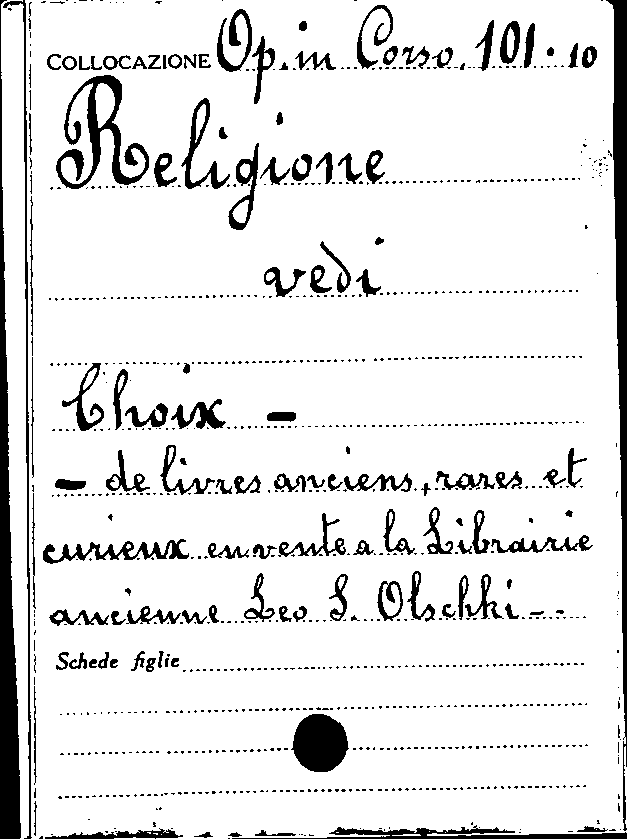 COLLOCAZIONE Op. in Corso. 101.10
Religione
vedi
Choix -
- de livres anciens, rares et
curieux en vente a la Librairie
ancienne Leo S. Olschki - -
Schede figlie